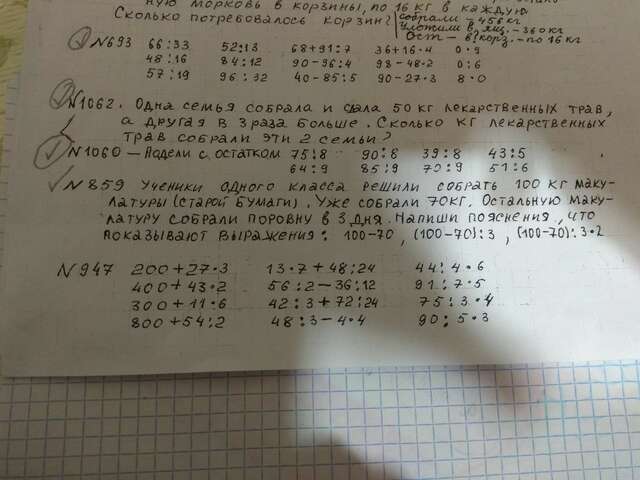 ную морковь в корзины, по 16 кг в каждую.
Сколько потребовалось корзин?
собрали - 456 кг
уложили в ящ. - 360 кг
Ост - в корз. - по 16 кг
① N693 66:33 52:13 68+91:7 36+16·4 0·9
48:16 84:12 90-96:4 98-48·2 0:6
57:19 96:32 40-85:5 90-27·3 8·0
N1062. Одна семья собрала и сдала 50 кг лекарственных трав,
а другая в 3 раза больше. Сколько кг лекарственных
трав собрали эти 2 семьи?
① N1060 – Надели с остатком 75:8 90:8 39:8 43:5
64:9 85:9 70:9 51:6
✓ N859 Ученики одного класса решили собрать 100 кг маку-
латуры (старой бумаги). Уже собрали 70кг. Остальную маку-
латуру собрали поровну в 3 дня. Напиши пояснения, что
показывают выражения: 100-70, (100-70):3, (100-70):3·2
N947 200+27·3 13·7+48:24 44:4·6
400+43·2 56:2-36:12 91:7·5
300+11·6 42:3+72:24 75:3·4
800+54:2 48:3-4·4 90:5·3